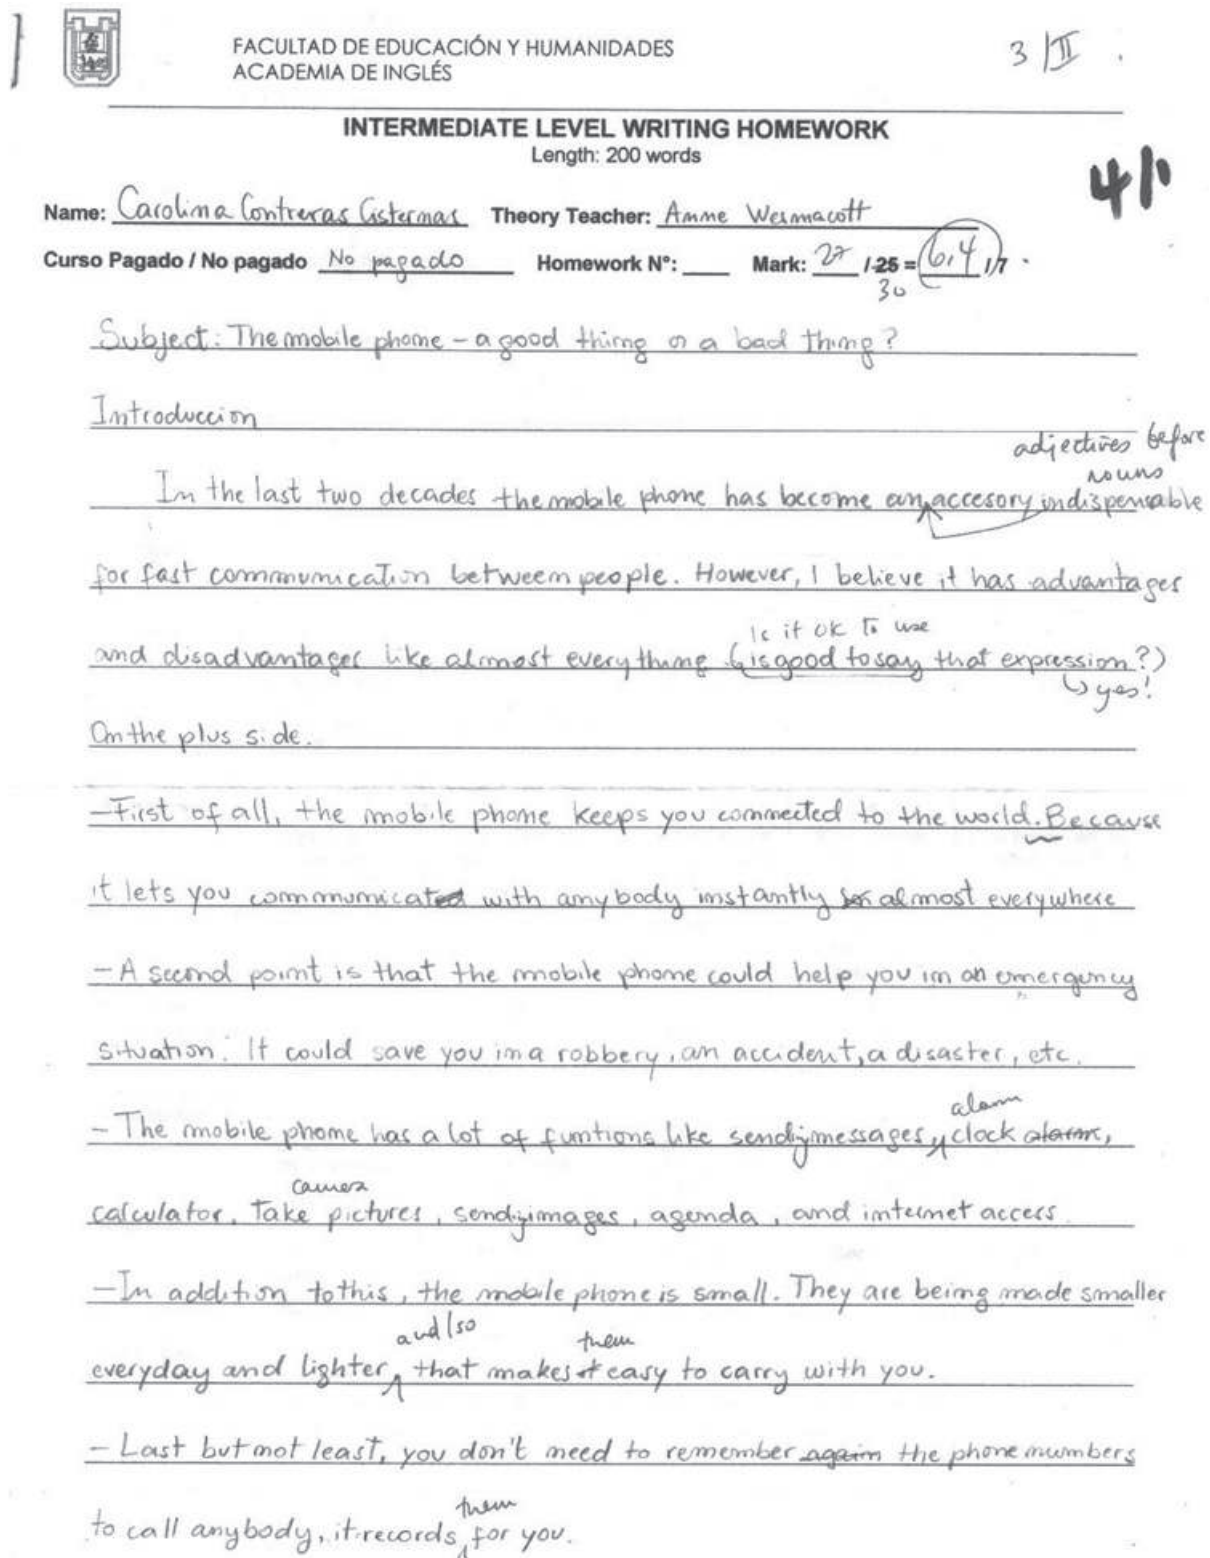 FACULTAD DE EDUCACIÓN Y HUMANIDADES
ACADEMIA DE INGLÉS
3/II.
INTERMEDIATE LEVEL WRITING HOMEWORK
Length: 200 words
Name: Carolina Contreras Cisternas Theory Teacher: Anne Wesmacott
Curso Pagado / No pagado No pagado Homework N°: Mark: 27 / 25 = 6,4 /7
30
Subject: The mobile phone - a good thing or a bad thing?
Introduccion
adjectives before
nouns
In the last two decades the mobile phone has become an accesory indispensable
for fast communication between people. However, I believe it has advantages
Is it OK to use
and disadvantages like almost everything (is good to say that expression?)
yes!
On the plus side.
- First of all, the mobile phone keeps you connected to the world. Because
it lets you communicated with anybody instantly almost everywhere
- A second point is that the mobile phone could help you in an emergency
situation. It could save you in a robbery, an accident, a disaster, etc.
alarm
- The mobile phone has a lot of funtions like sending messages, clock alarm,
camera
calculator, take pictures, sending images, agenda, and internet access.
- In addition to this, the mobile phone is small. They are being made smaller
and/so them
everyday and lighter, that makes it easy to carry with you.
- Last but not least, you don't need to remember again the phone numbers
them
to call anybody, it records for you.